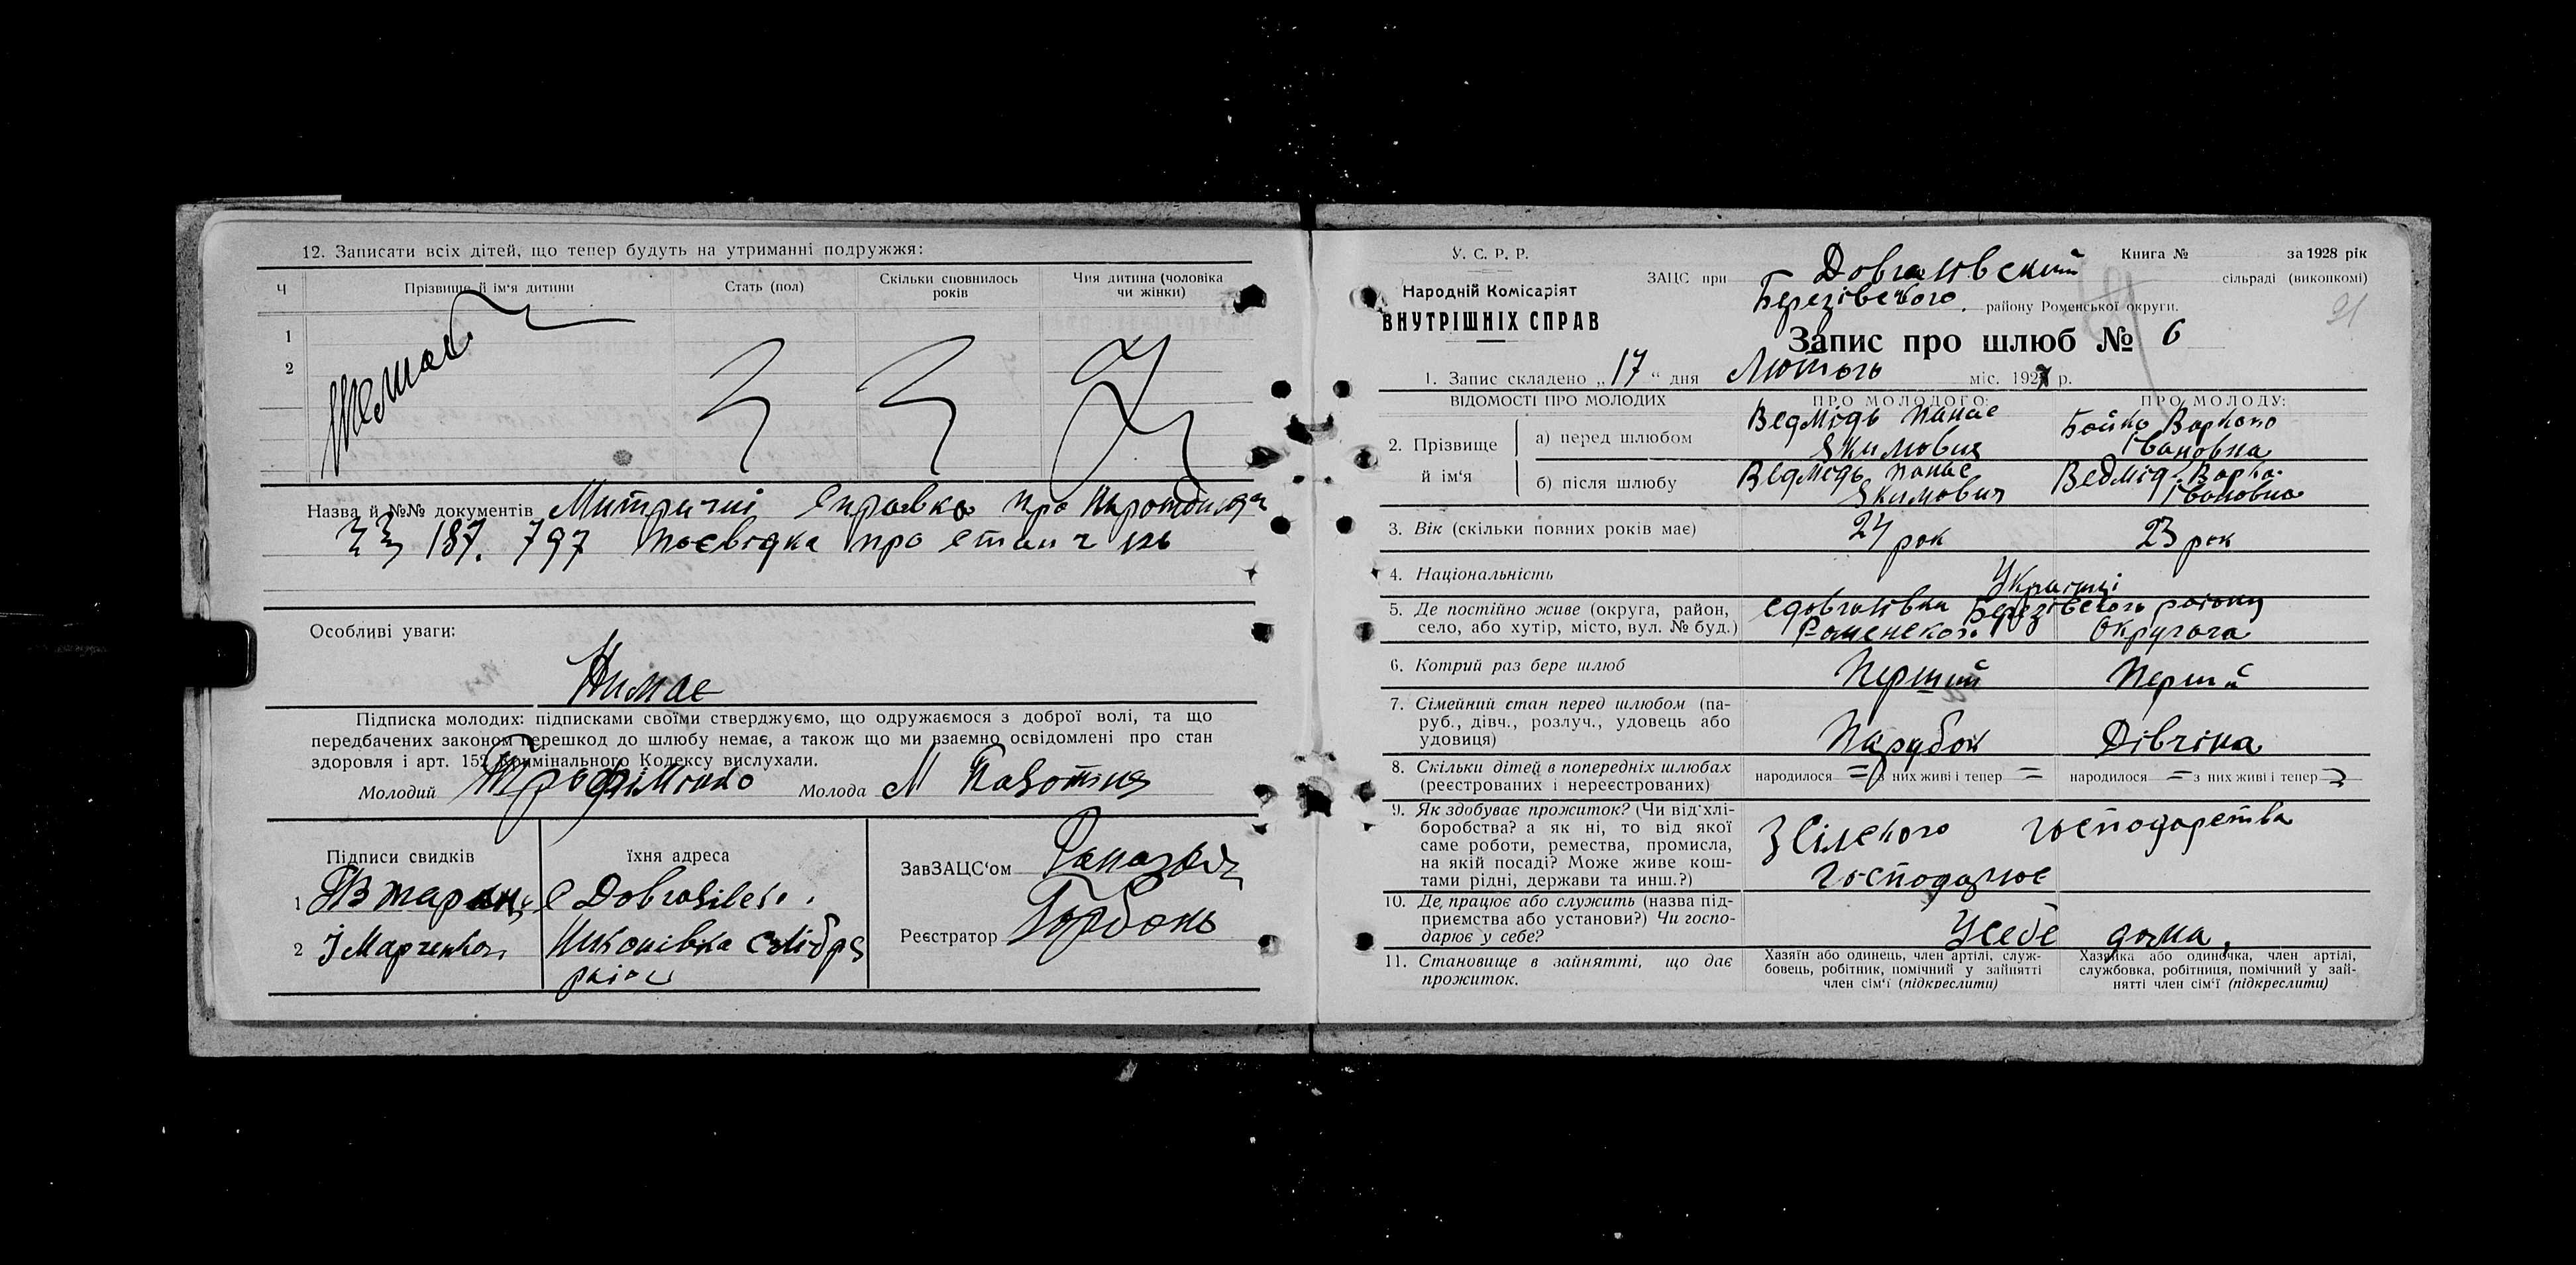 12. Записати всіх дітей, що тепер будуть на утриманні подружжя:
Ч
Прізвище й ім'я дитини
Стать (пол)
Скільки сповнилось
років
Чия дитина (чоловіка
чи жінки)
1
2
Назва й №№ документів Митричні справка про
187. 797 посвідка про стан
Особливі уваги:
Нимає
Підписка молодих: підписками своїми стверджуємо, що одружаємося з доброї волі, та що
передбачених законом перешкод до шлюбу немає, а також що ми взаємно освідомлені про стан
здоровля і арт. 15 Кримінального Кодексу вислухали.
Молодий Трофіменко Молода М
Підписи свидків
їхня адреса
ЗавЗАЦС'ом
1
2 І Марченко
Реєстратор Горбань
У. С. Р. Р.
Народній Комісаріят
ВНУТРІШНІХ СПРАВ
Книга № за 1928 рік
ЗАЦС при Довгалівский сільраді (виконкомі)
Березівского району Роменської округи.
21
Запис про шлюб № 6
1. Запис складено „17“ дня Лютого міс. 1927 р.
ВІДОМОСТІ ПРО МОЛОДИХ
ПРО МОЛОДОГО:
ПРО МОЛОДУ:
2. Прізвище
й ім'я
а) перед шлюбом
Ведмідь Панас
Якимович
Бойко Варка
Івановна
б) після шлюбу
Ведмідь Панас
Якимович
Ведмідь Варка
Івановна
3. Вік (скільки повних років має) 24 рок 23 рок
4. Національність Українці
5. Де постійно живе (округа, район,
село, або хутір, місто, вул. № буд.)
с Довгалівка Березівского району
Роменской Округа
6. Котрий раз бере шлюб Перший Перший
7. Сімейний стан перед шлюбом (па-
руб., дівч., розлуч., удовець або
удовиця)
Парубок Дівчіна
8. Скільки дітей в попередніх шлюбах
(реєстрованих і нереєстрованих)
народилося = з них живі і тепер =
народилося = з них живі і тепер
9. Як здобуває прожиток? (Чи від хлі-
боробства? а як ні, то від якої
саме роботи, ремества, промисла,
на якій посаді? Може живе кош-
тами рідні, держави та инш.?)
З Сілского господарства
господарює
10. Де працює або служить (назва під-
приємства або установи?) Чи госпо-
дарює у себе?
Усебе дома.
11. Становище в зайнятті, що дає
прожиток.
Хазяїн або одинець, член артілі, служ-
бовець, робітник, помічний у зайнятті
член сім'ї (підкреслити)
Хазяйка або одиночка, член артілі,
службовка, робітниця, помічний у зай-
нятті член сім'ї (підкреслити)